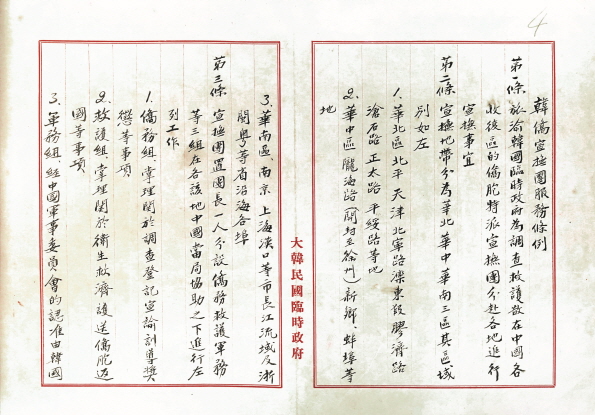 4
韓僑宣撫團服務條例
第一條 旅渝韓國臨時政府為調查救護散在中國各
收復區的僑胞特派宣撫團分赴各地進行
宣撫事宜
第二條 宣撫地帶分為華北華中華南三區其區域
別如左
1. 華北區 北平 天津 北寧路 灤東段 膠濟路
滄石路 正太路 平綏路等地
2. 華中區 隴海路(開封至徐州)新鄉、蚌埠等
地
大韓民國臨時政府
3. 華南區、南京 上海 漢口等市長江流域及浙
閩粵等省沿海各埠
第三條 宣撫團置團長一人分設僑務救護軍務
等三組在各該地中國當局協助之下進行左
列工作
1. 僑務組、掌理關於調查登記宣諭訓導獎
懲等事項
2. 救護組、掌理關於衛生救濟護送僑胞返
國等事項
3. 軍務組、經中國軍事委員會的認准由韓國